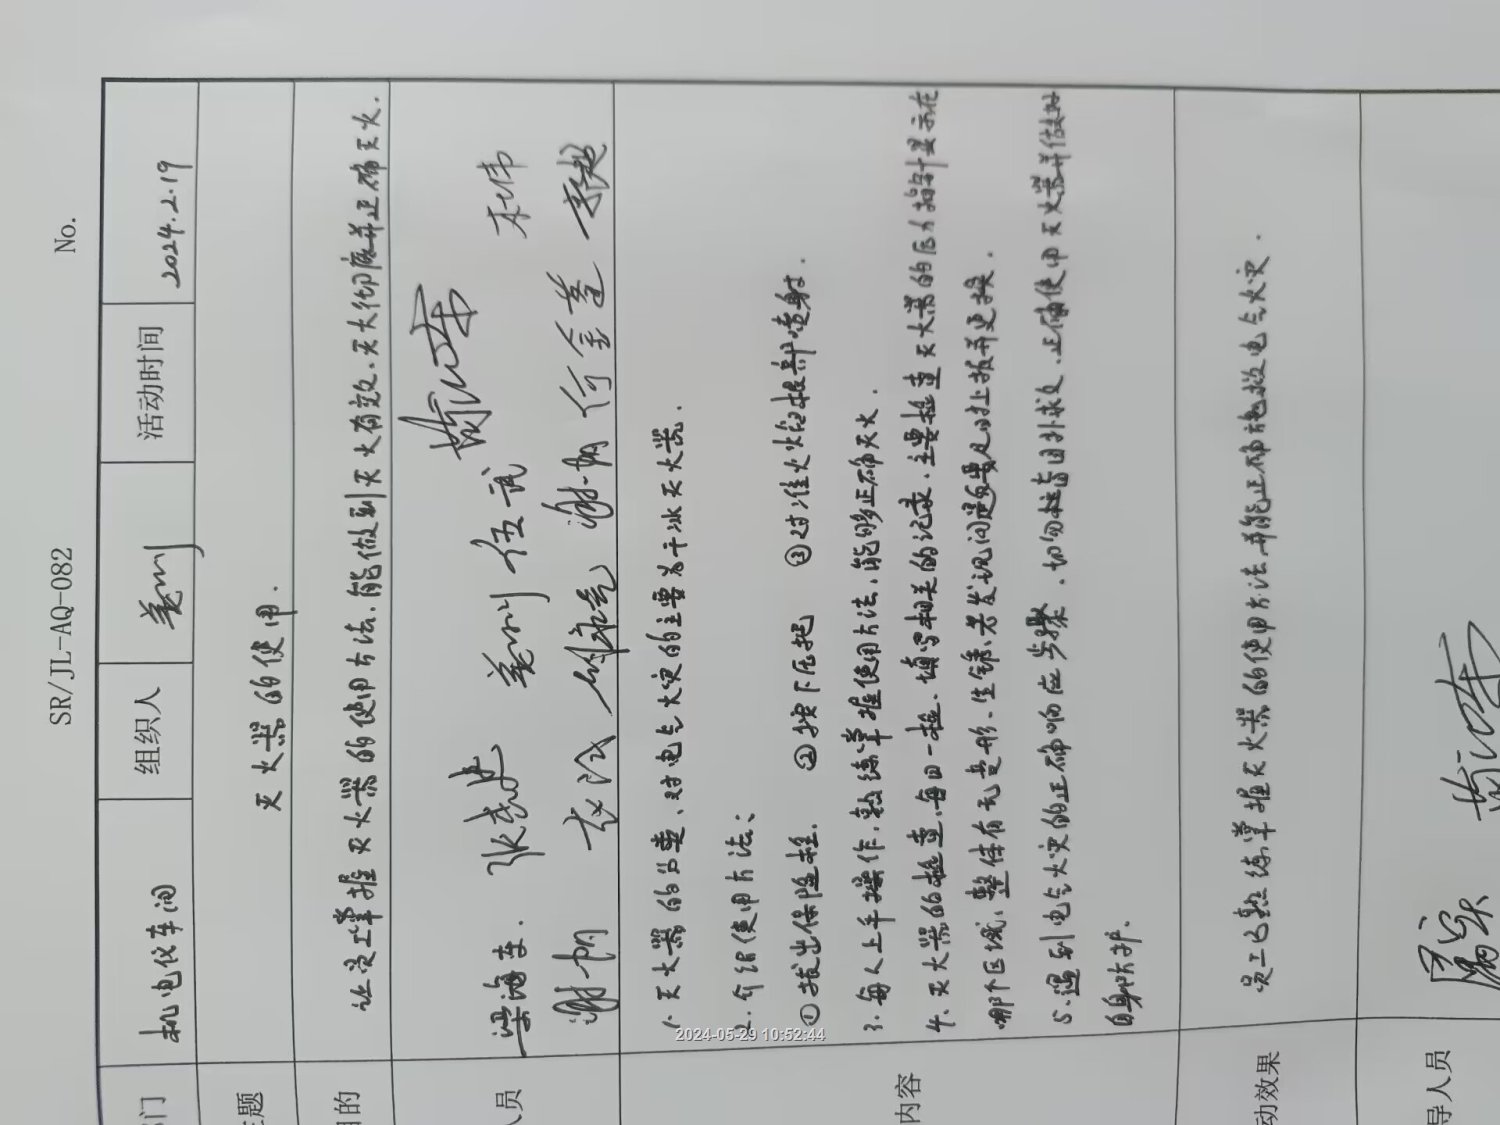 SR/JL-AQ-082 No.
门 机电仪车间 组织人 姜川 活动时间 2024.2.19
题 灭火器的使用.
目的 让员工掌握灭火器的使用方法.能做到灭火有效.灭火彻底并正确灭火.
人员 梁海车. 张志忠 姜川 伍武 杜伟
谢帅 谢娟 何金莲 李超
1. 灭火器的分类、对电气火灾的主要为干冰灭火器.
2. 介绍使用方法:
①拔出保险栓. ②按下压把 ③对准火焰根部喷射.
内容
3. 每人上手操作.熟练掌握使用方法.能够正确灭火.
4. 灭火器的检查.每日一检、填写相关的记录.主要检查灭火器的压力指针显示在
哪个区域、整体有无变形、生锈、若发现问题要及时上报并更换.
5. 遇到电气火灾的正确响应步骤.切勿盲目扑救.正确使用灭火器并做好
自身防护.
动效果 员工已熟练掌握灭火器的使用方法.并能正确施救电气火灾.
导人员
2024-05-29 10:52:44